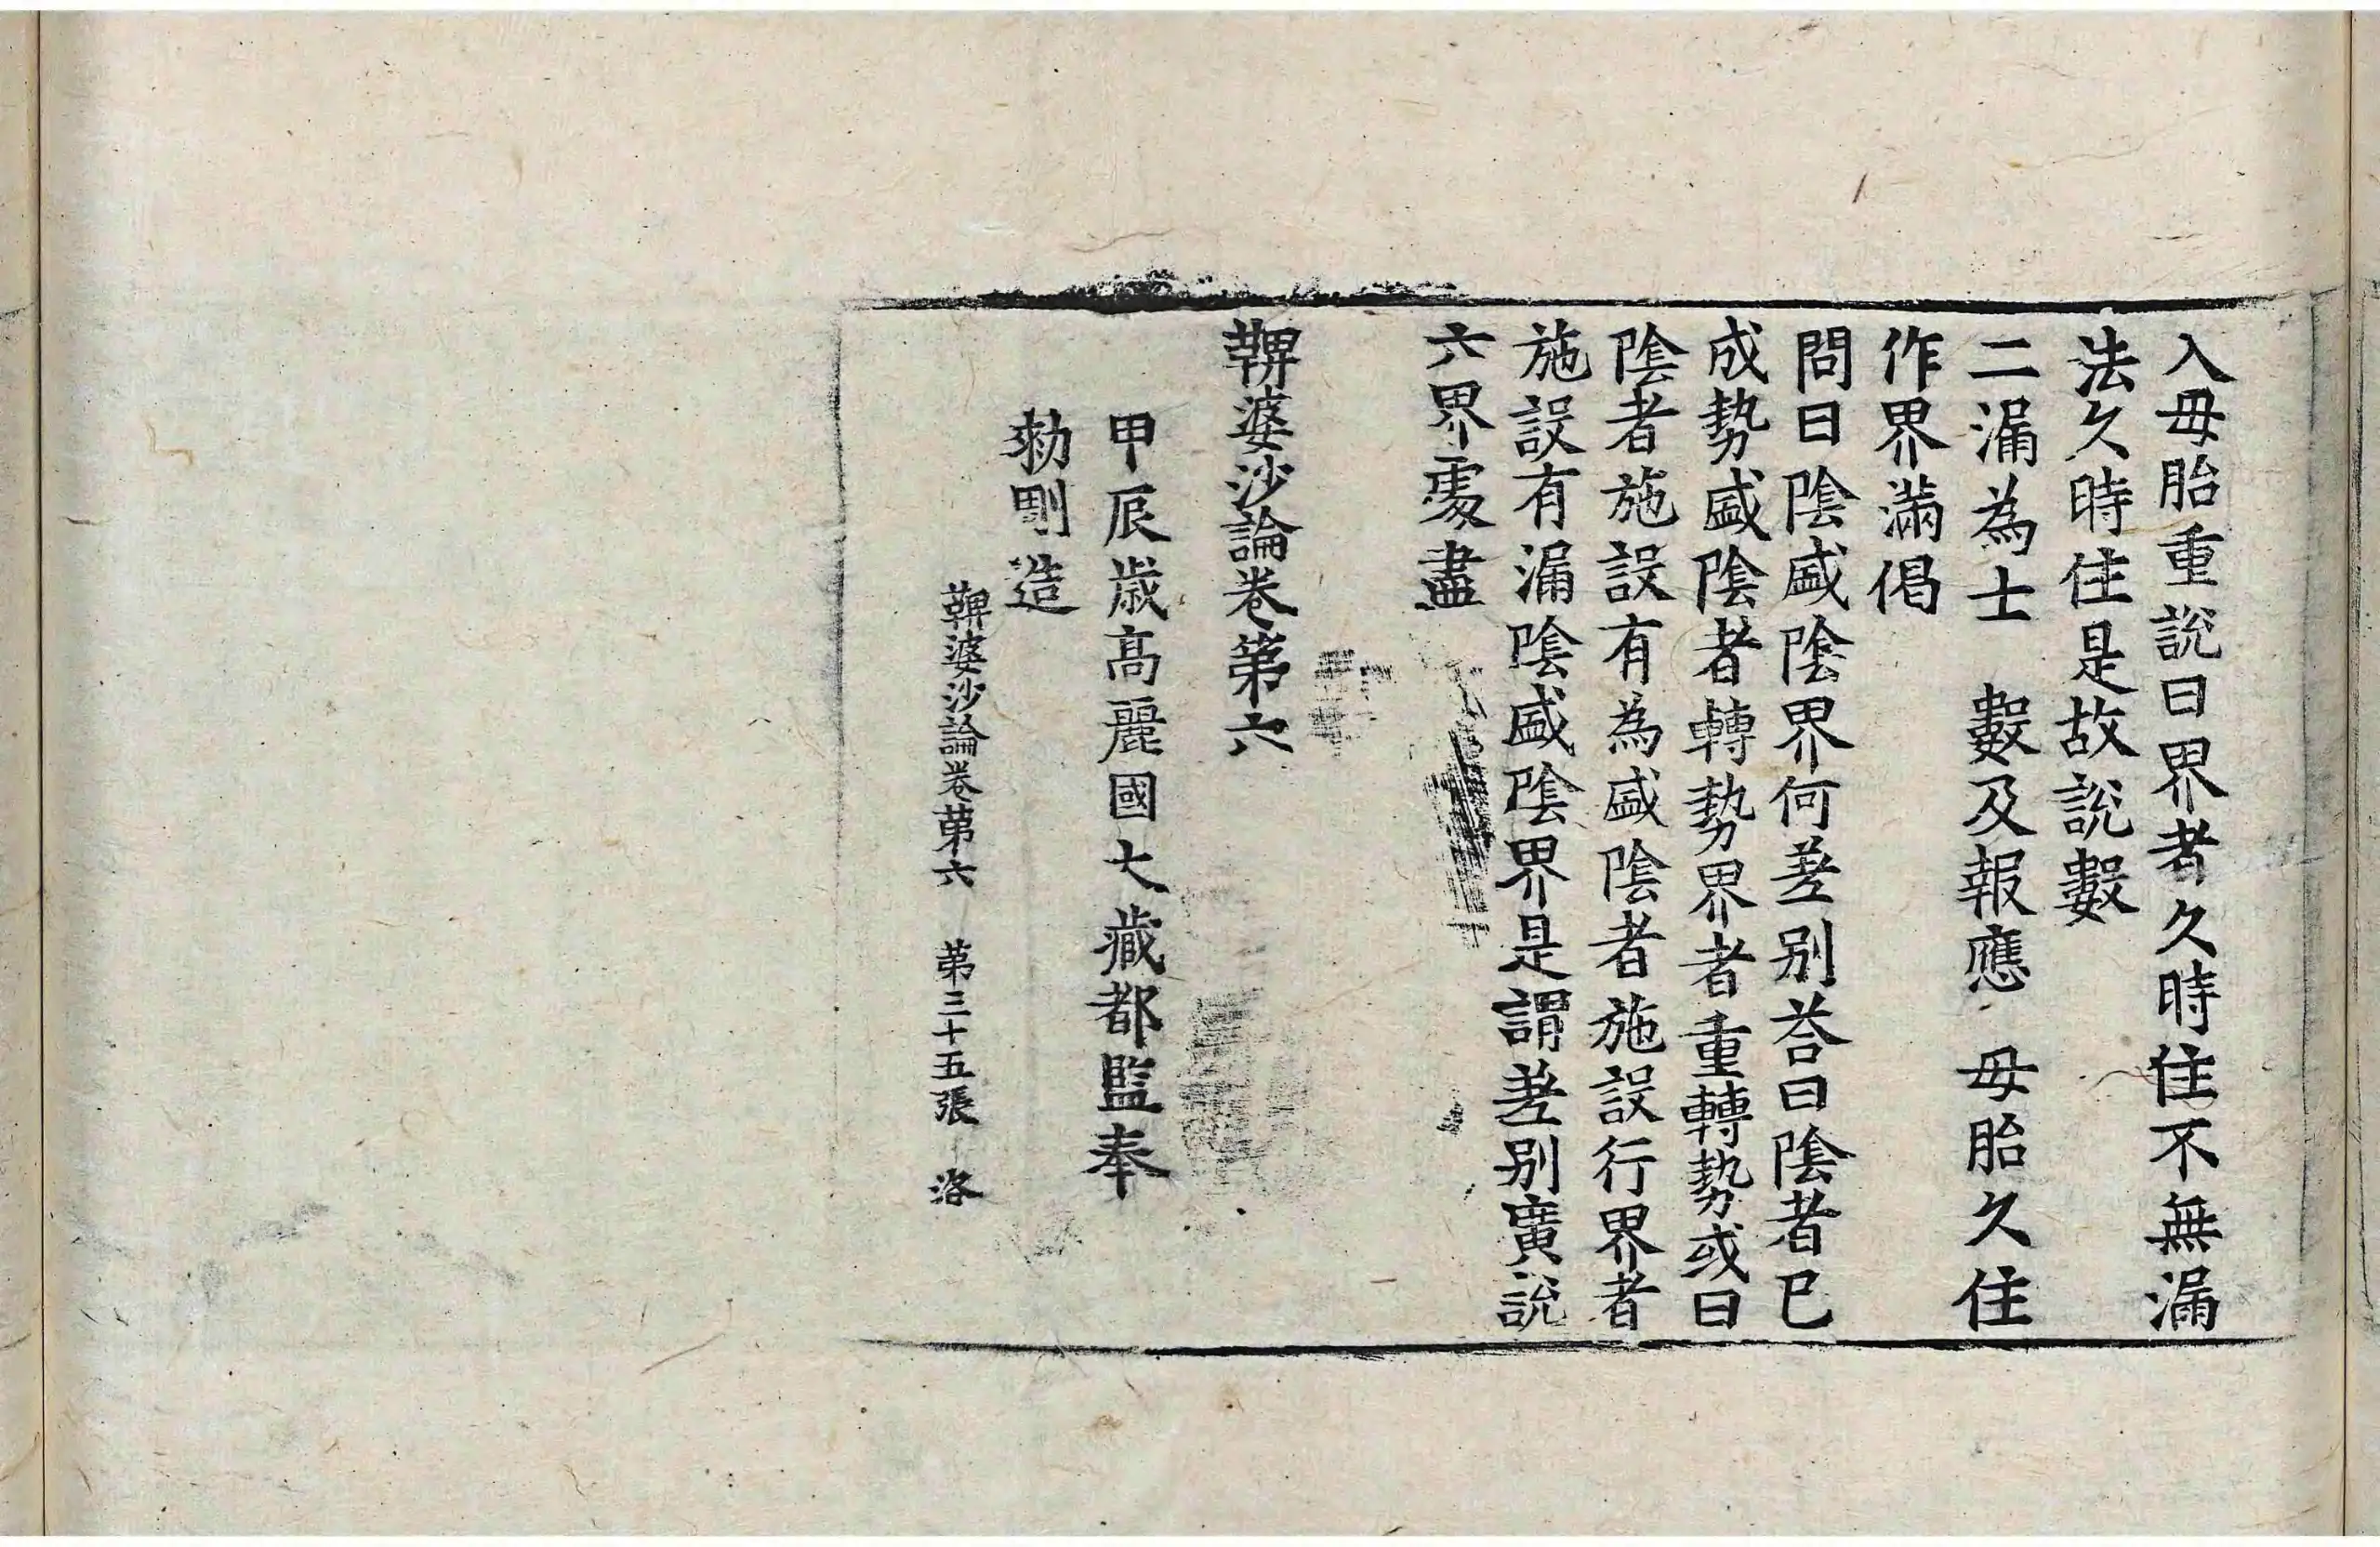 入母胎重說曰界者久時住不無漏
法久時住是故說數
二漏為士　數及報應　母胎久住
作界滿偈
問曰陰盛陰界何差別荅曰陰者已
成勢盛陰者轉勢界者重轉勢或曰
陰者施設有為盛陰者施設行界者
施設有漏陰盛陰界是謂差别廣說
六界處盡
鞞婆沙論卷第六
甲辰歳高麗國大藏都監奉
勑彫造
鞞婆沙論卷第六　第三十五張　洛